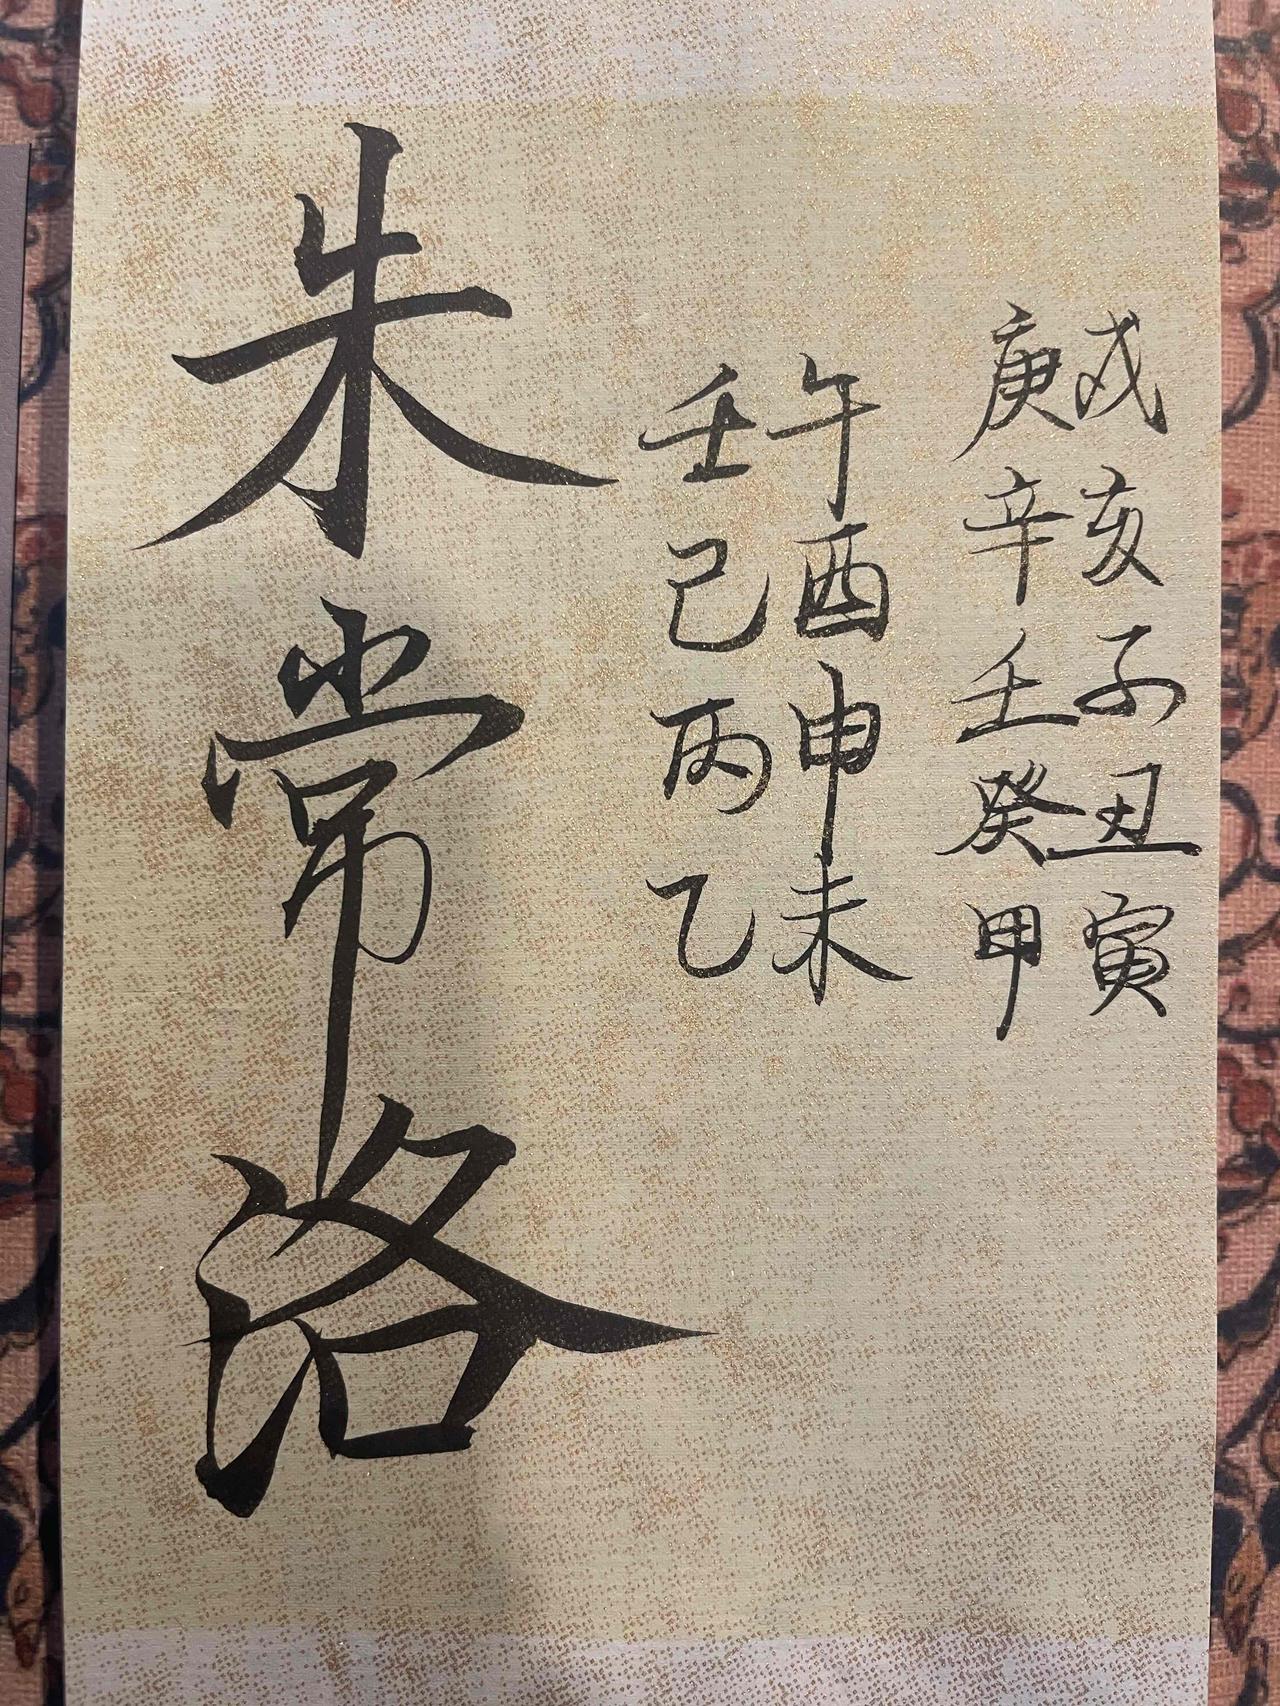 戌亥子丑寅
庚辛壬癸甲
午酉申未
壬己丙乙
朱常洛